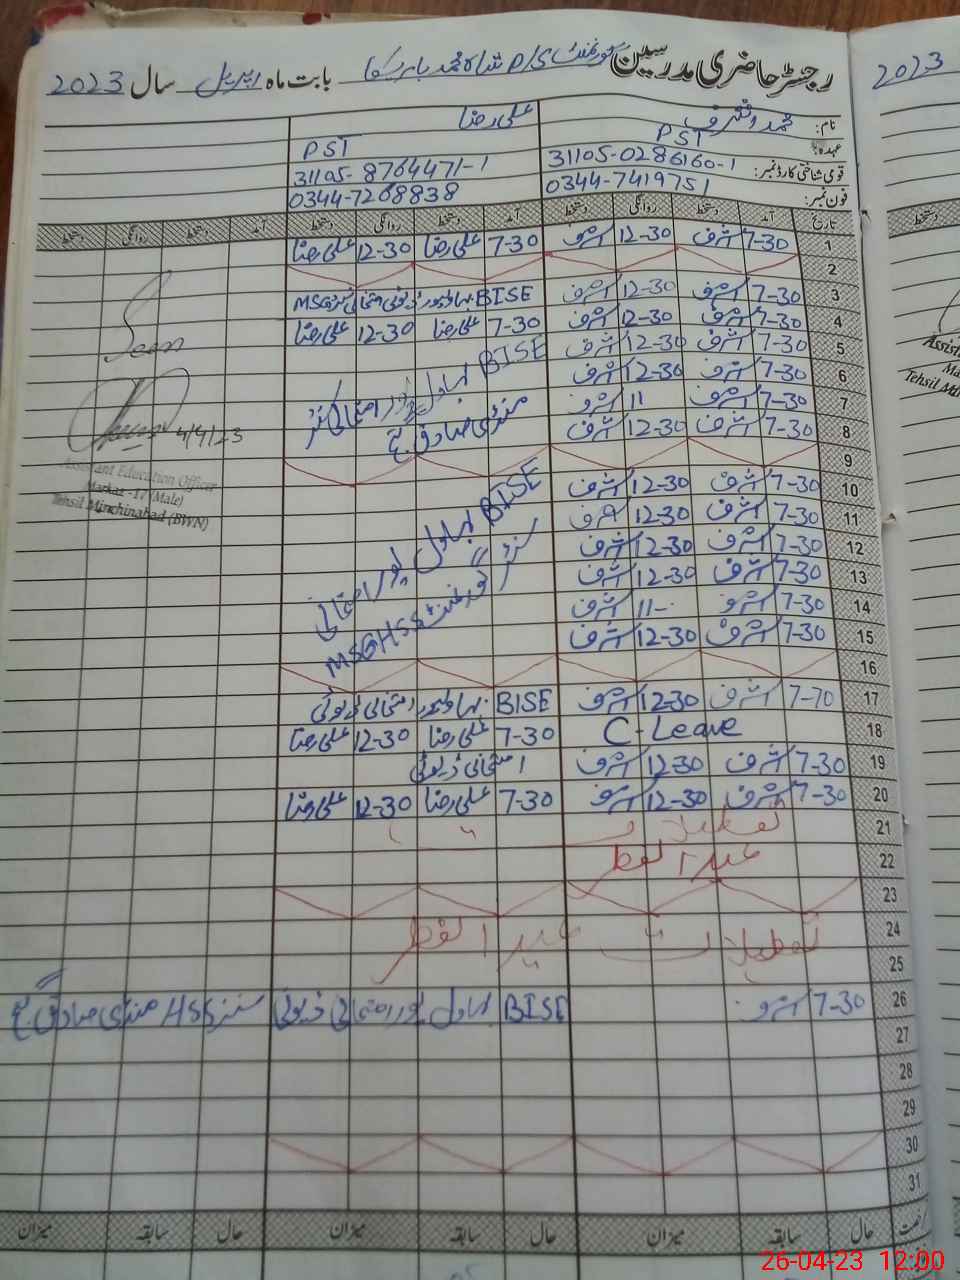 رجسٹر حاضری مدرسین گورنمنٹ P/S شاہ محمد بابت ماہ اپریل سال 2023
2023
نام: محمد اشرف علی رضا
عہدہ: PST PST
قومی شناختی کارڈ نمبر: 31105-0286160-1 31105-8764471-1
فون نمبر: 0344-7419751 0344-7268838
تاریخ آمد دستخط روانگی دستخط آمد دستخط روانگی دستخط دستخط روانگی دستخط
1 7-30 اشرف 12-30 اشرف 7-30 علی رضا 12-30 علی رضا
2
3 7-30 اشرف 12-30 اشرف BISE بہاولپور ڈیوٹی امتحانی سنٹر MSG
4 7-30 اشرف 12-30 اشرف 7-30 علی رضا 12-30 علی رضا
5 7-30 اشرف 12-30 اشرف
BISE بہاولپور امتحانی سنٹر
6 7-30 اشرف 12-30 اشرف
7 7-30 اشرف 11 اشرف
منڈی صادق گنج
8 7-30 اشرف 12-30 اشرف
9
10 7-30 اشرف 12-30 اشرف
11 7-30 اشرف 12-30 اشرف
BISE بہاول پور امتحانی
12 7-30 اشرف 12-30 اشرف
13 7-30 اشرف 12-30 اشرف
سنٹر گورنمنٹ MSGHSS
14 7-30 اشرف 11- اشرف
15 7-30 اشرف 12-30 اشرف
16
17 7-70 اشرف 12-30 اشرف BISE بہاولپور امتحانی ڈیوٹی
18 C-Leave 7-30 علی رضا 12-30 علی رضا
19 7-30 اشرف 12-30 اشرف امتحانی ڈیوٹی
20 7-30 اشرف 12-30 اشرف 7-30 علی رضا 12-30 علی رضا
21 تعطیلات
22 عید الفطر
23
24 تعطیلات عید الفطر
25
26 7-30 اشرف BISE بہاول پور امتحانی ڈیوٹی سنٹر HSS منڈی صادق گنج
27
28
29
30
31
حال سابقہ میزان حال سابقہ میزان حال سابقہ میزان
Seen
4/4/23
Assistant Education Officer
Markaz -17 (Male)
Tehsil Minchinabad (BWN)
دستخط
Assist
Ma
Tehsil Min
26-04-23 12:00